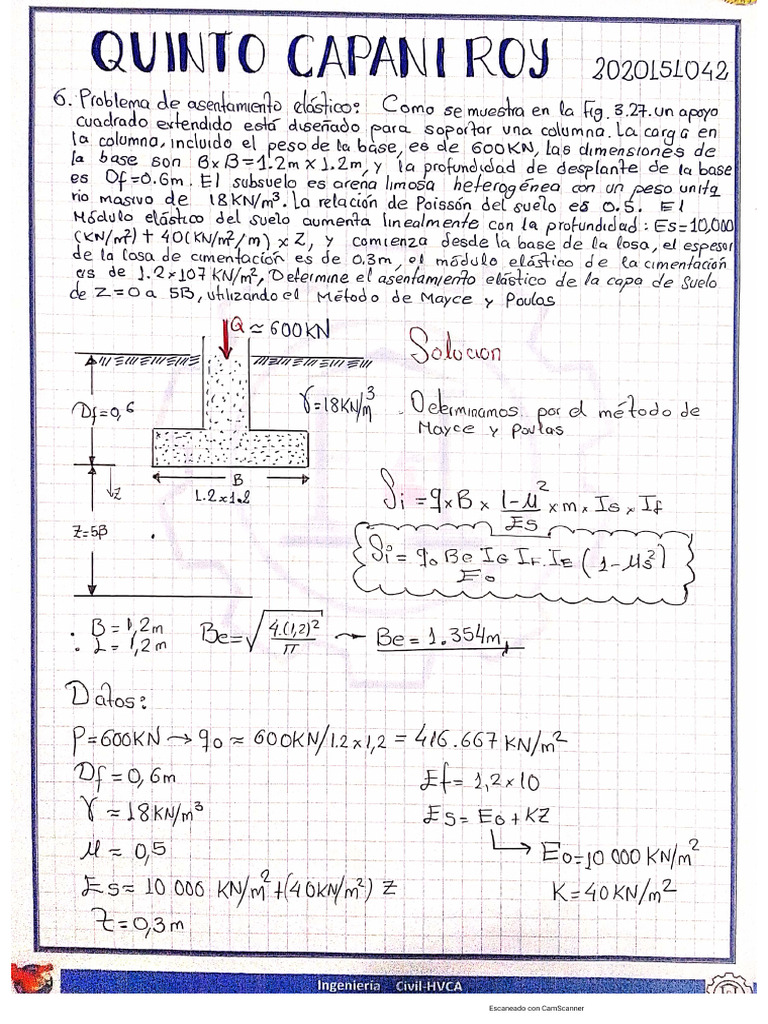 QUINTO CAPANI ROY 2020151042
6. Problema de asentamiento elástico: Como se muestra en la Fig. 3.27. un apoyo
cuadrado extendido está diseñado para soportar una columna. La carga en
la columna, incluido el peso de la base, es de 600KN, las dimensiones de
la base son B×B=1.2m×1.2m, y la profundidad de desplante de la base
es Df=0.6m. El subsuelo es arena limosa heterogénea con un peso unita
rio masivo de 18KN/m³. La relación de Poissón del suelo es 0.5. El
Módulo elástico del suelo aumenta linealmente con la profundidad: Es=10,000
(KN/m²)+40(KN/m²/m)×Z, y comienza desde la base de la losa, el espesor
de la losa de cimentación es de 0,3m, el módulo elástico de la cimentación
es de 1.2×107KN/m², Determine el asentamiento elástico de la capa de suelo
de Z=0 a 5B, utilizando el Método de Mayce y Poulas
Q ≃ 600KN
Solucion
Df=0,6
γ=18KN/m³
. Determinamos por el método de
Mayce y Poulas
B
1.2×1.2
Z
Z=5B
Si = q×B× (1-μ²)/Es ×m×Is×If
Si = q₀ Be IG IF.IE/E₀ (1-μs²)
. B=1,2m
. L=1,2m
Be=√(4.(1,2)²/π) → Be=1.354m,
Datos:
P=600KN → q₀ ≈ 600KN/1.2×1,2 = 416.667 KN/m²
Df=0,6m
Ef=1,2×10
γ≈18KN/m³
Es=E₀+KZ
μ≈0,5
E₀=10 000 KN/m²
Es≈10 000 KN/m²+(40KN/m²) Z
K=40KN/m²
t=0,3m
Ingeniería Civil-HVCA
Escaneado con CamScanner